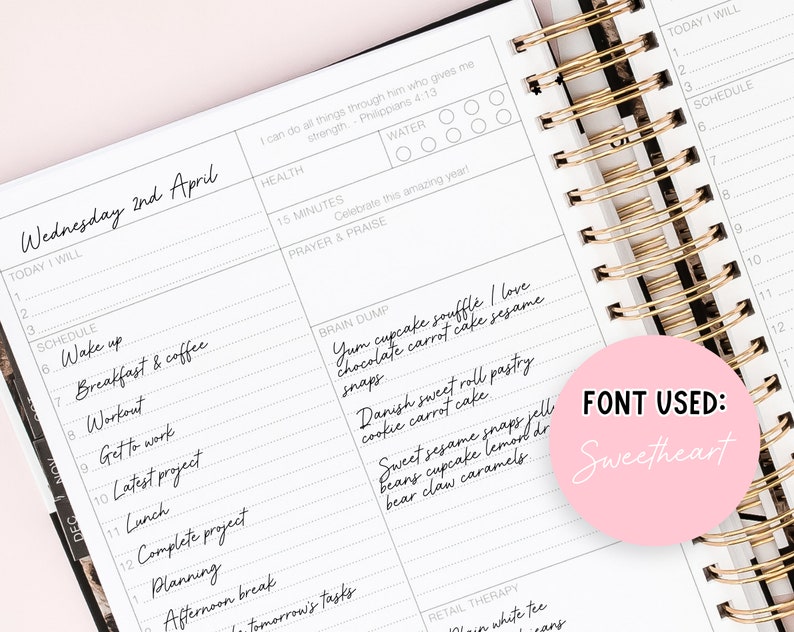 Wednesday 2nd April
I can do all things through him who gives me
strength. - Philippians 4:13
HEALTH
WATER
15 MINUTES
Celebrate this amazing year!
PRAYER & PRAISE
TODAY I WILL
1
2
3
SCHEDULE
6 Wake up
7 Breakfast & coffee
8 Workout
9 Get to work
10 Latest project
11 Lunch
12 Complete project
1 Planning
2 Afternoon break
tomorrow's tasks
BRAIN DUMP
Yum cupcake soufflé. I love
chocolate carrot cake sesame
snaps
Danish sweet roll pastry
cookie carrot cake.
Sweet sesame snaps
beans cupcake lemon
bear claw caramels.
RETAIL THERAPY
Plain white tee
jeans
NOV
DEC
TODAY I WILL
1
2
3
SCHEDULE
6
7
8
9
11
12
1
2
FONT USED:
Sweetheart